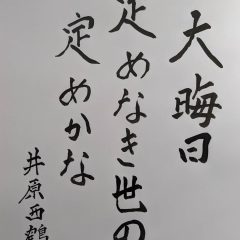 大晦日
定めなき世の
定めかな
井原西鶴